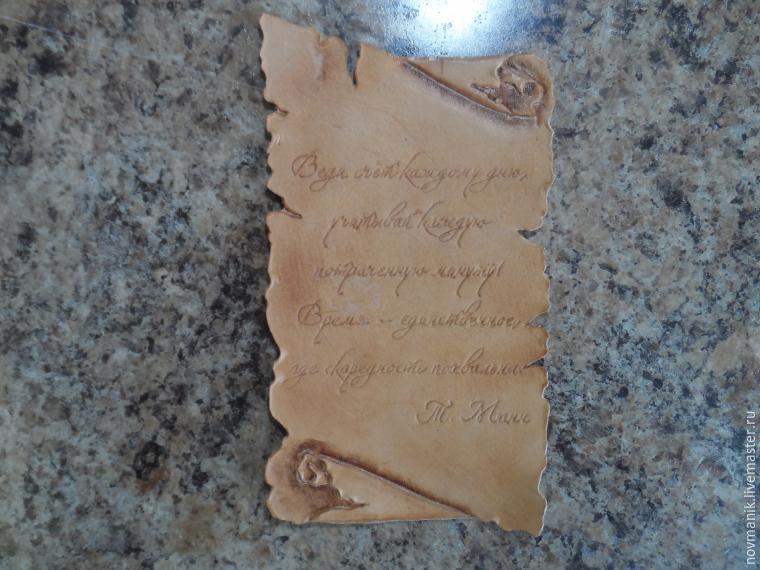 Веди счёт каждому дню,
учитывай каждую
потраченную минуту!
Время – единственное,
где скаредность похвальна.
Т. Манн
novmanik.livemaster.ru